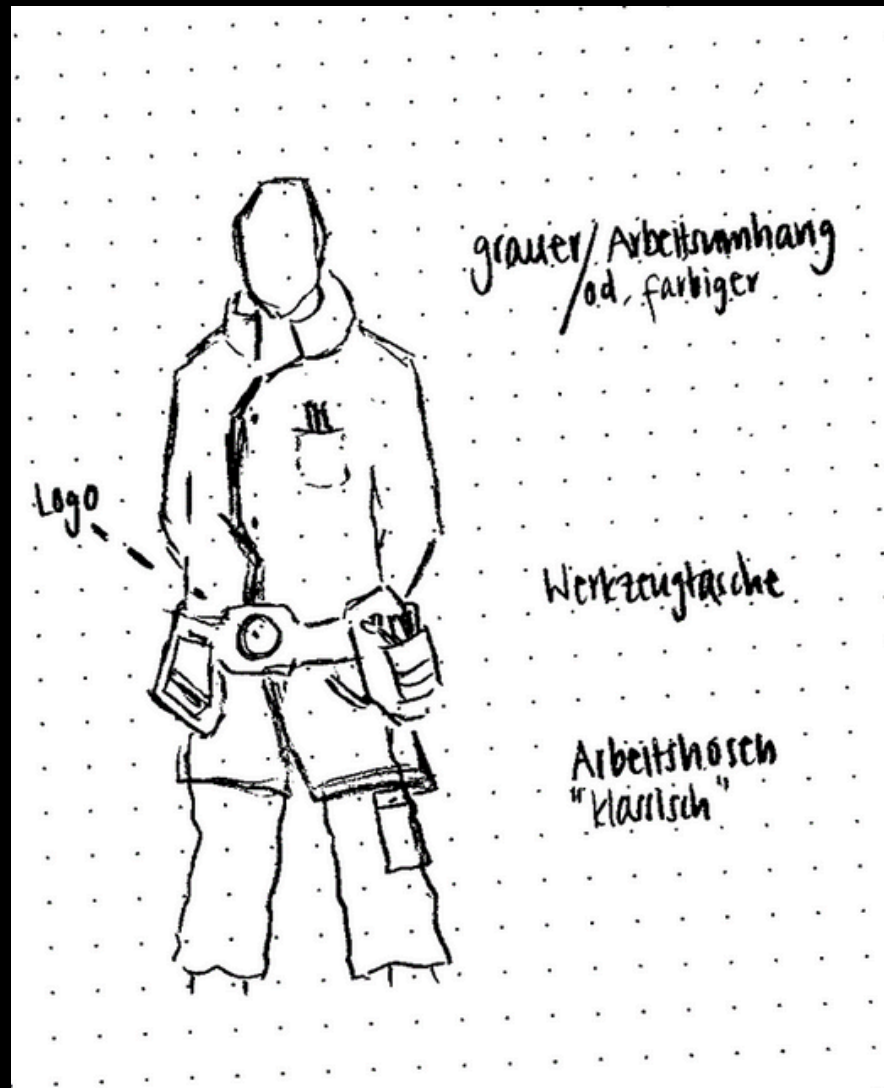 grauer/Arbeitsumhang
od. farbiger
Logo
Werkzeugtasche
Arbeitshosen
"klassisch"